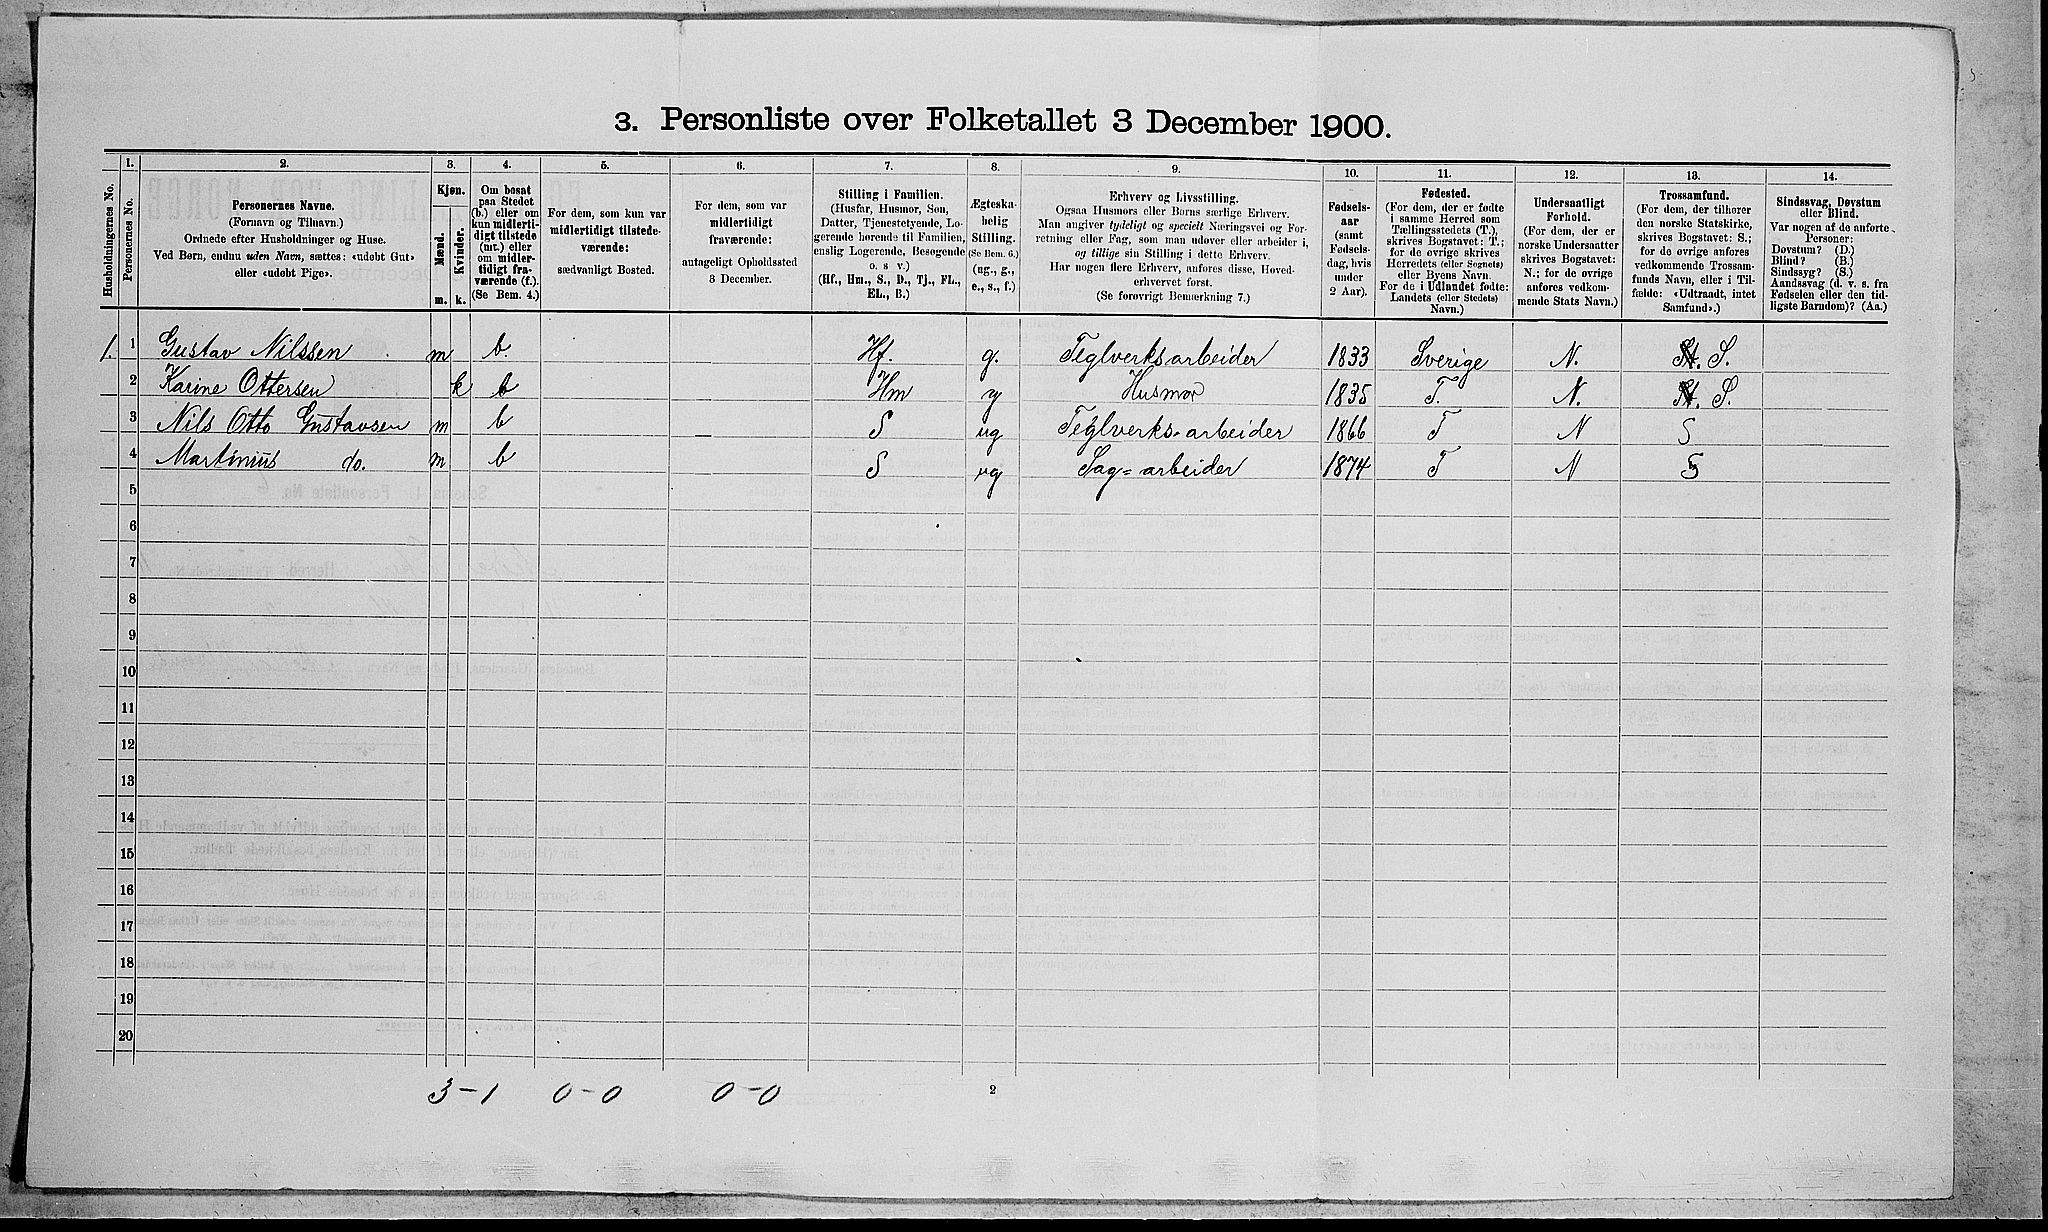 3. Personliste over Folketallet 3 December 1900.
Husholdningernes No.
1.
Personernes No.
2.
Personernes Navne.
(Fornavn og Tilnavn.)
Ordnede efter Husholdninger og Huse.
Ved Børn, endnu uden Navn, sættes: «udøbt Gut»
eller «udøbt Pige».
3.
Kjøn.
Mænd.
Kvinder.
m.
k.
4.
Om bosat
paa Stedet
(b.) eller om
kun midlerti-
digt tilstede
(mt.) eller
om midler-
tidigt fra-
værende (f.).
(Se Bem. 4.)
5.
For dem, som kun var
midlertidigt tilstede-
værende:
sædvanligt Bosted.
6.
For dem, som var
midlertidigt
fraværende:
antageligt Opholdssted
3 December.
7.
Stilling i Familien.
(Husfar, Husmor, Søn,
Datter, Tjenestetyende, Lo-
gerende hørende til Familien,
enslig Logerende, Besøgende
o. s v.)
(Hf., Hm., S., D., Tj., FL.,
EL., B.)
8.
Ægteska-
belig
Stilling.
(Se Bem. 6.)
(ug., g.,
e., s., f.)
9.
Erhverv og Livsstilling.
Ogsaa Husmors eller Børns særlige Erhverv.
Man angiver tydeligt og specielt Næringsvei og For-
retning eller Fag, som man udøver eller arbeider i,
og tillige sin Stilling i dette Erhverv.
Har nogen flere Erhverv, anføres disse, Hoved-
erhvervet først.
(Se forøvrigt Bemærkning 7.)
10.
Fødsels-
aar
(samt
Fødsels-
dag, hvis
under
2 Aar).
11.
Fødested.
(For dem, der er fødte
i samme Herred som
Tællingsstedets (T.),
skrives Bogstavet: T.;
for de øvrige skrives
Herredets (eller Sognets)
eller Byens Navn.
For de i Udlandet fødte:
Landets (eller Stedets)
Navn.)
12.
Undersaatligt
Forhold.
(For dem, der er
norske Undersaatter
skrives Bogstavet:
N.; for de øvrige
anføres vedkom-
mende Stats Navn.)
13.
Trossamfund.
(For dem, der tilhører
den norske Statskirke,
skrives Bogstavet: S.;
for de øvrige anføres
vedkommende Trossam-
funds Navn, eller i Til-
fælde: «Udtraadt, intet
Samfund».)
14.
Sindssvag, Døvstum
eller Blind.
Var nogen af de anførte
Personer:
Døvstum? (D.)
Blind? (B.)
Sindssyg? (S.)
Aandssvag (d. v. s. fra
Fødselen eller den tid-
ligste Barndom)? (Aa.)
1. 1 Gustav Nilssen m b. Hf. g. Teglverksarbeider 1833 Sverige N. S.
2 Karine Ottersen k b Hm g Husmor 1835 T. N. S.
3 Nils Otto Gustavsen m b S ug Teglverks-arbeider 1866 T N S
4 Martinius do. m b S ug Sag=arbeider 1874 T N S
5
6
7
8
9
10
11
12
13
14
15
16
17
18
19
20
3-1 0-0 0-0 2